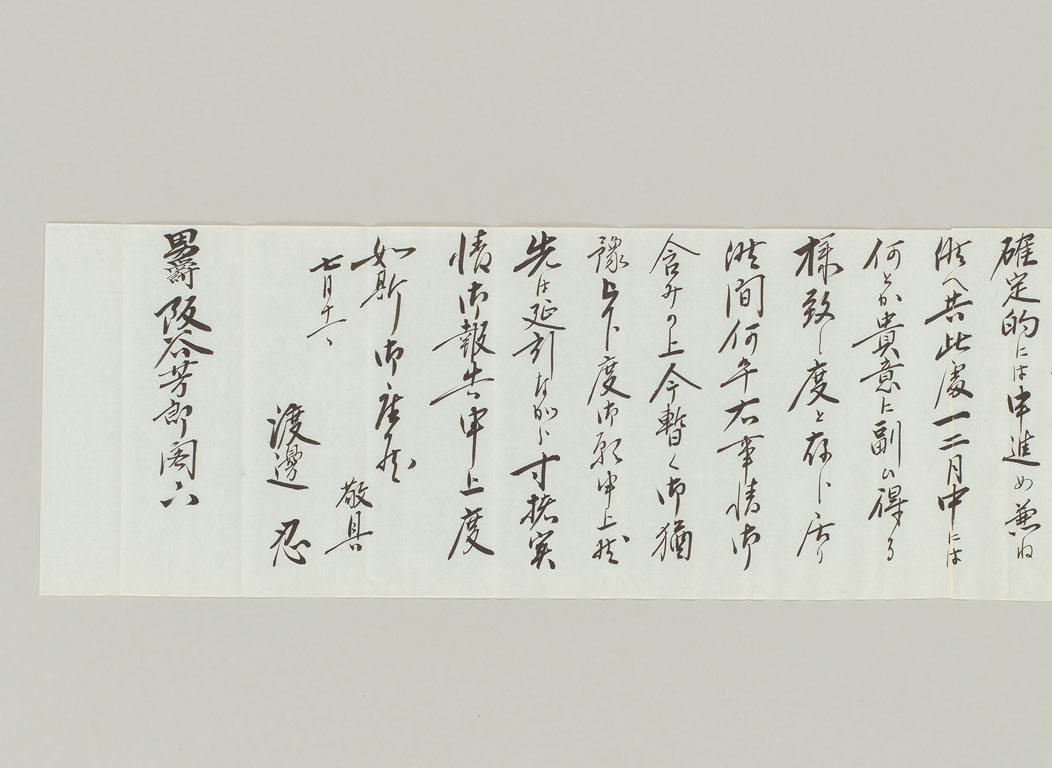 確定的には申進め兼ね
候へ共此處一二月中には
何とか貴意に副ひ得る
様致し度と存じ居り
候間何卒右事情御
含みの上今暫く御猶
豫下度御願申上候
先は延引ながら寸楮実
情御報告申上度
如斯御座候
敬具
七月十
渡邊 忍
男爵 阪谷芳郎閣下